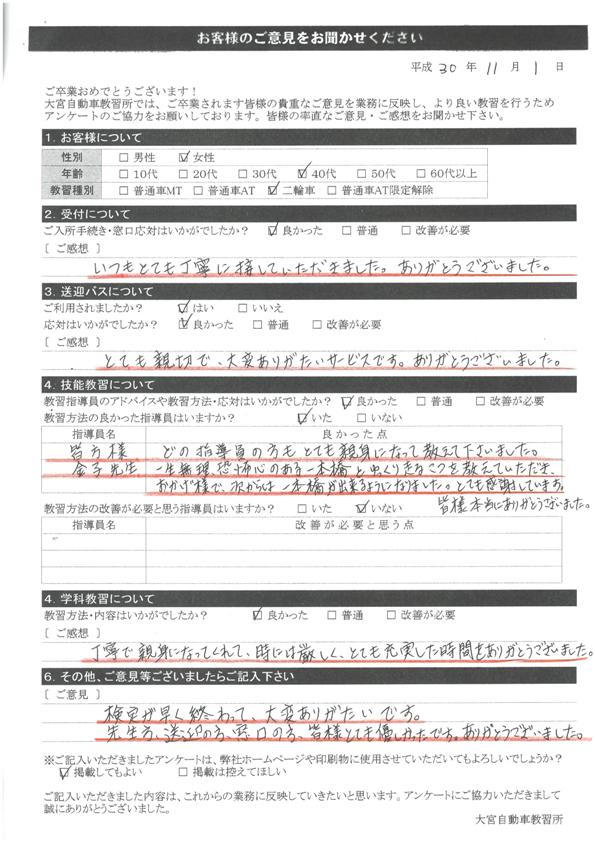 お客様のご意見をお聞かせください
平成 30 年 11 月 1 日
ご卒業おめでとうございます！
大宮自動車教習所では、ご卒業されます皆様の貴重なご意見を業務に反映し、より良い教習を行うため
アンケートのご協力をお願いしております。皆様の率直なご意見・ご感想をお聞かせ下さい。
1. お客様について
性別 □ 男性 ☑ 女性
年齢 □ 10代 □ 20代 □ 30代 ☑ 40代 □ 50代 □ 60代以上
教習種別 □ 普通車MT □ 普通車AT ☑ 二輪車 □ 普通車AT限定解除
2. 受付について
ご入所手続き・窓口応対はいかがでしたか？ ☑ 良かった □ 普通 □ 改善が必要
[ ご感想 ]
いつもとても丁寧に接していただきました。ありがとうございました。
3. 送迎バスについて
ご利用されましたか？ ☑ はい □ いいえ
応対はいかがでしたか？ ☑ 良かった □ 普通 □ 改善が必要
[ ご感想 ]
とても親切で、大変ありがたいサービスです。ありがとうございました。
4. 技能教習について
教習指導員のアドバイスや教習方法・応対はいかがでしたか？ ☑ 良かった □ 普通 □ 改善が必要
教習方法の良かった指導員はいますか？ ☑ いた □ いない
指導員名 良かった点
皆方様 どの指導員の方もとても親身になって教えて下さいました。
金子先生 一生無理、恐怖心のある一本橋とゆっくり走るこつを教えていただき、
おかげ様で、次からは一本橋が出来るようになりました。とても感謝しています。
皆様本当にありがとうございました。
教習方法の改善が必要と思う指導員はいますか？ □ いた ☑ いない
指導員名 改善が必要と思う点
4. 学科教習について
教習方法・内容はいかがでしたか？ ☑ 良かった □ 普通 □ 改善が必要
[ ご感想 ]
丁寧で親身になってくれて、時には厳しく、とても充実した時間をありがとうございました。
6. その他、ご意見等ございましたらご記入下さい
[ ご意見 ]
検定が早く終わって、大変ありがたいです。
先生方、送迎の方、窓口の方、皆様とても優しかったです。ありがとうございました。
※ご記入いただきましたアンケートは、弊社ホームページや印刷物に使用させていただいてもよろしいでしょうか？
☑ 掲載してもよい □ 掲載は控えてほしい
ご記入いただきました内容は、これからの業務に反映していきたいと思います。アンケートにご協力いただきまして
誠にありがとうございました。
大宮自動車教習所